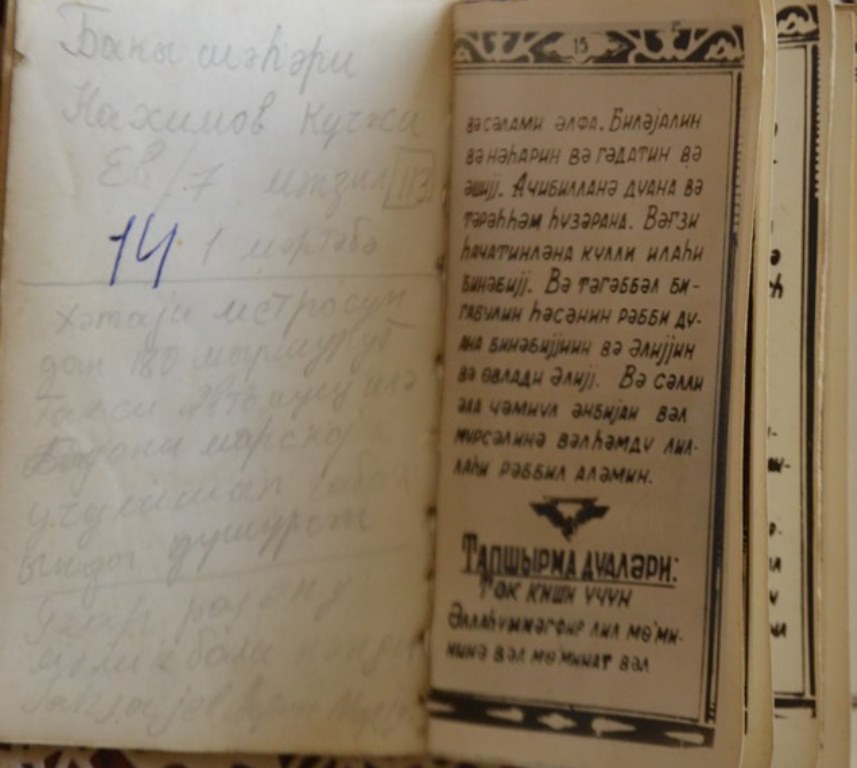 Бакы шәһәри
Нахимов Күчәси
Ев/7 мәнзил 113
14 1 мәртәбә
Хәтаји метросун
дан 180 маршурут
Такси илә
марској
душурсән
Гах рајону
кәнди
15
вәсәлами әлфа. Биләјалин
вә нәһарин вә гәдатин вә
әшијј. Ачибилланә дуана вә
тәрәһһәм һузәрана. Вәгзи
һачатинләна кулли илаһи
бинәбијј. Вә тәгәббәл би-
габулин һәсәнин рәбби ду-
ана бинәбијјнин вә әлијјин
вә өвлади әлијј. Вә сәлли
әла чәмиул әнбијаи вәл
мурсәлинә вәлһәмду лил-
лаһи рәббил аләмин.
Тапшырма дуаләри:
Тәк киши учун
Әллаһуммәгфир лил мө'ми-
нинә вәл мө'минат вәл